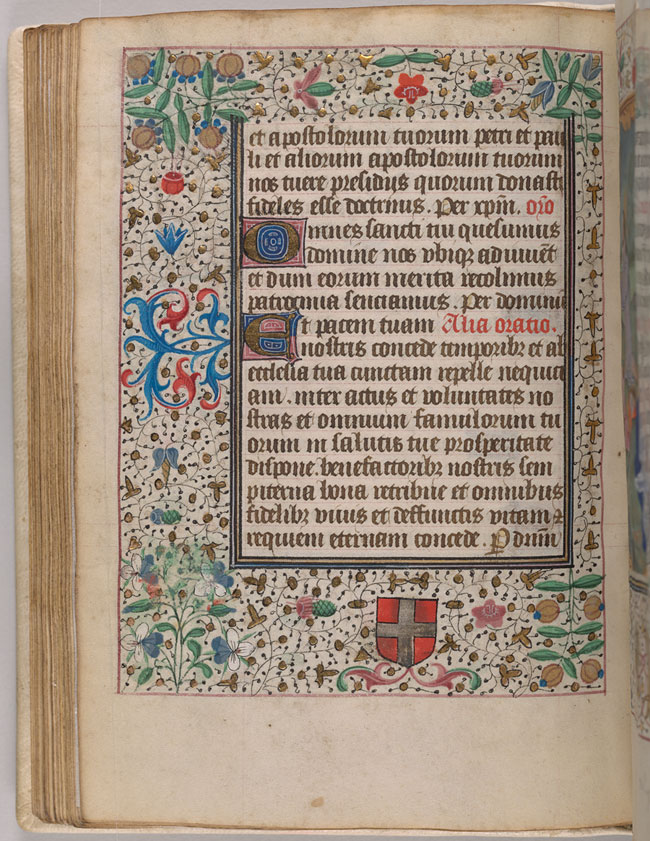 et apostolorum tuorum petri et pau
li et aliorum apostolorum tuorum
nos tuere presidiis quorum donasti
fideles esse doctrinis. Per xpm. oro
Omnes sancti tui quesumus
domine nos vbiq; adiuuet
et dum eorum merita recolimus
patrocinia senciamus. Per dominu
Et pacem tuam Alia oratio.
nostris concede temporibz et ab
ecclesia tua cunctam repelle nequici
am. inter actus et voluntates no
stras et omnium famulorum tu
orum in salutis tue prosperitate
dispone. benefactoribz nostris sem
piterna bona retribue et omnibus
fidelibz viuis et deffunctis vitam et
requiem eternam concede. P dnm